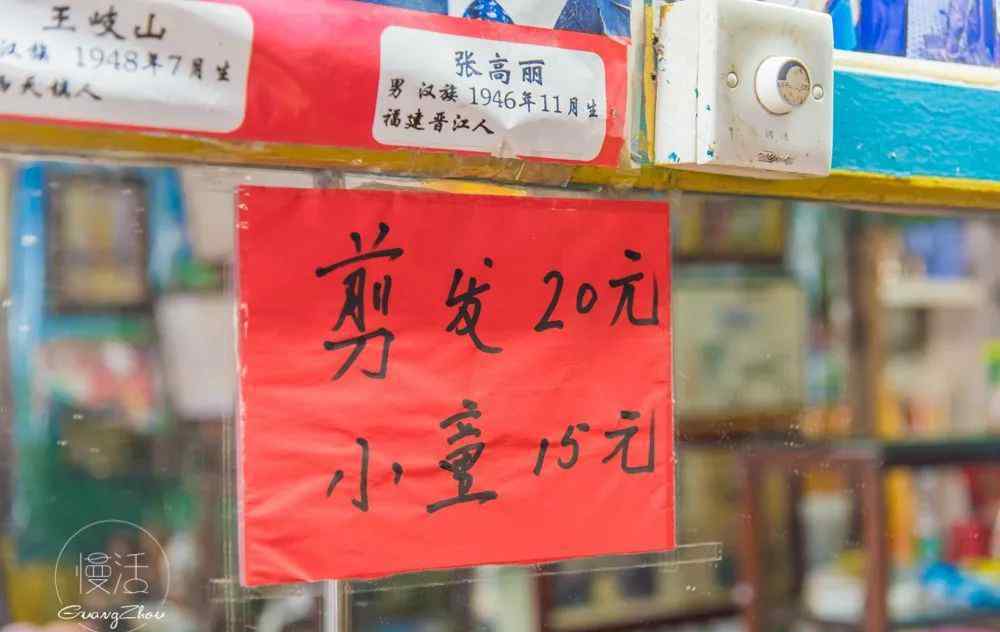 王岐山
汉族 1948年7月生
天镇人
张高丽
男 汉族 1946年11月生
福建晋江人
剪发 20元
小童 15元
慢活
GuangZhou